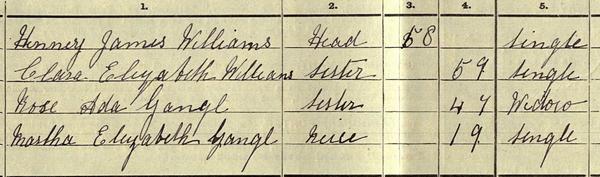 1. 2. 3. 4. 5.
Henney James Williams Head 58 single
Clara Elizabeth Williams sister 59 single
Rose Ada Gangl sister 47 Widow
Martha Elizabeth Gangl Neice 19 single